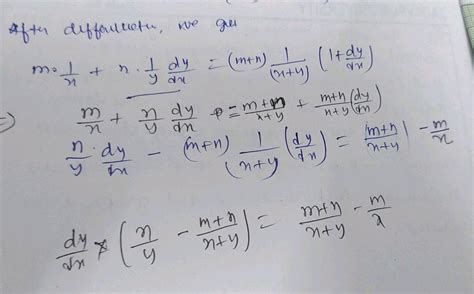 After differentiation, we get
m·1/x + n·1/y dy/dx = (m+n) 1/(x+y) (1+dy/dx)
⇒ m/x + n/y dy/dx = m+n/x+y + m+n/x+y (dy/dx)
n/y · dy/dx − (m+n) 1/(x+y) (dy/dx) = (m+n)/x+y − m/x
dy/dx × (n/y − m+n/x+y) = m+n/x+y − m/x